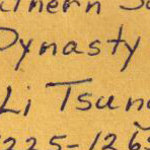 thern S
Dynasty
Li Tsun
1225-126